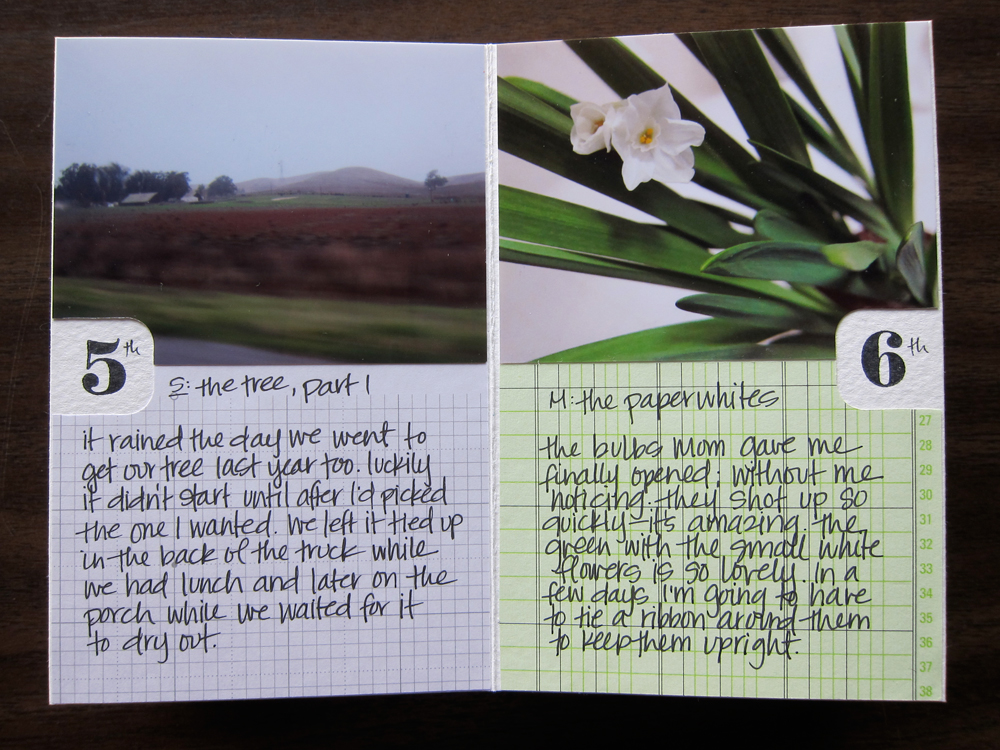 5th
S: the tree, part 1
it rained the day we went to
get our tree last year too. luckily
it didn't start until after I'd picked
the one I wanted. We left it tied up
in the back of the truck while
we had lunch and later on the
porch while we waited for it
to dry out.
6th
M: the paperwhites
the bulbs Mom gave me
finally opened; without me
noticing. they shot up so
quickly—it's amazing. the
green with the small white
flowers is so lovely. In a
few days I'm going to have
to tie a ribbon around them
to keep them upright.
27
28
29
30
31
32
33
34
35
36
37
38